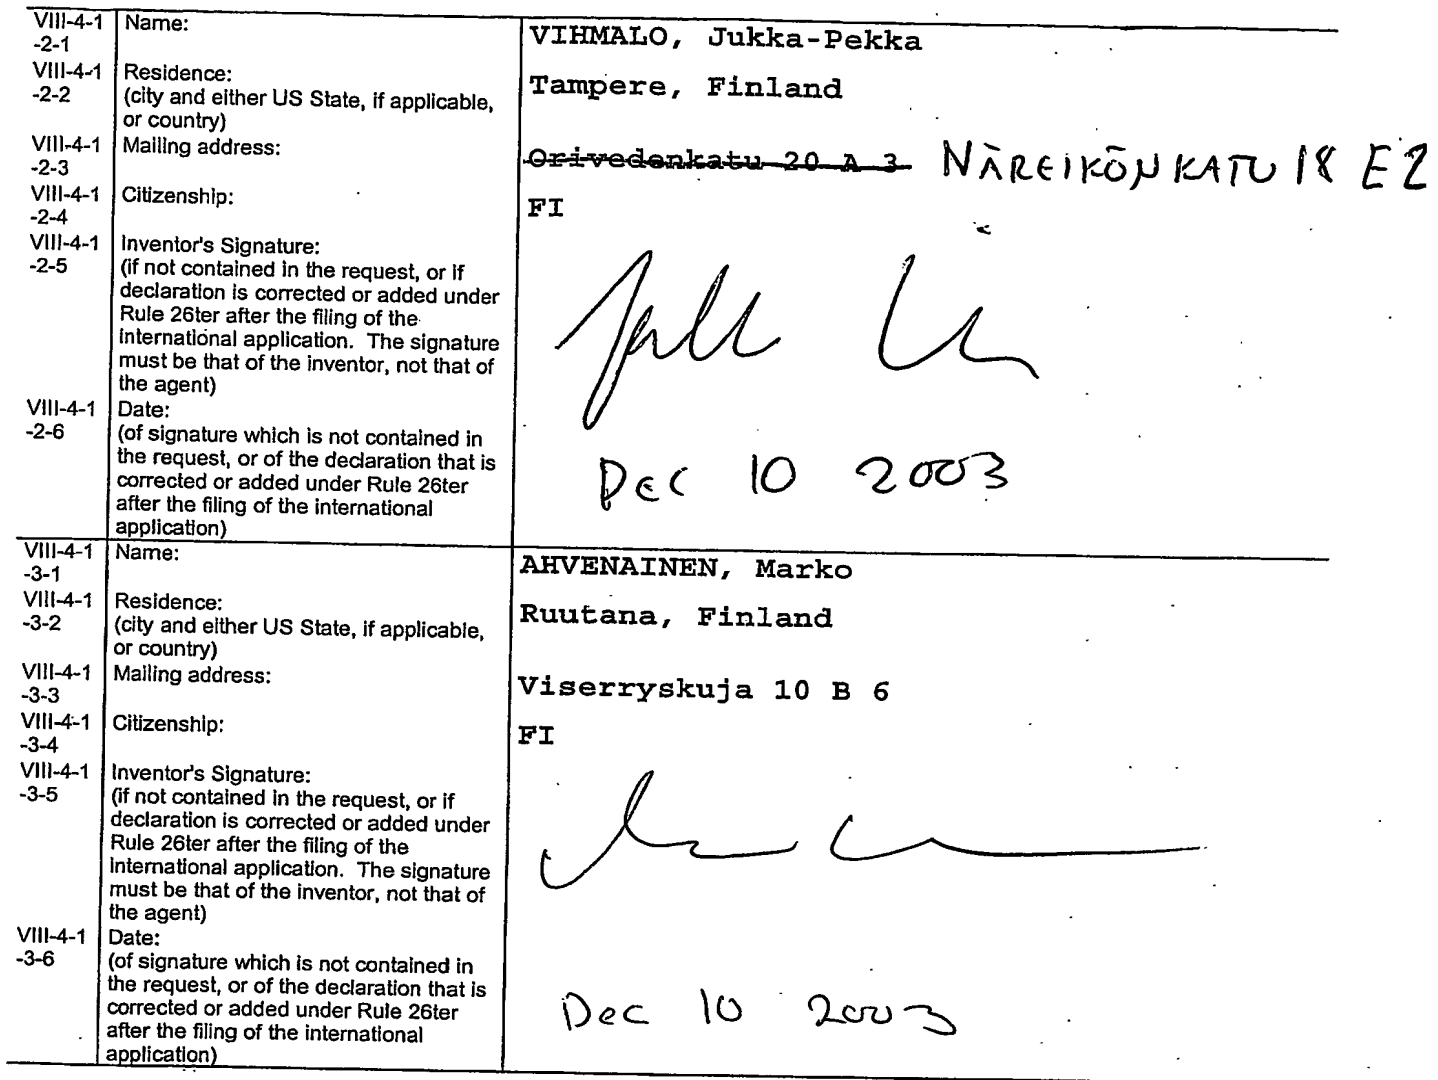 VIII-4-1 Name: VIHMALO, Jukka-Pekka
-2-1
VIII-4-1 Residence: Tampere, Finland
-2-2 (city and either US State, if applicable,
or country)
VIII-4-1 Mailing address: Orivedenkatu 20 A 3 NÄREIKÖNKATU 18 E2
-2-3
VIII-4-1 Citizenship: FI
-2-4
VIII-4-1 Inventor's Signature:
-2-5 (if not contained in the request, or if
declaration is corrected or added under
Rule 26ter after the filing of the
international application. The signature
must be that of the inventor, not that of
the agent)
VIII-4-1 Date:
-2-6 (of signature which is not contained in
the request, or of the declaration that is
corrected or added under Rule 26ter
after the filing of the international
application)
Dec 10 2003
VIII-4-1 Name: AHVENAINEN, Marko
-3-1
VIII-4-1 Residence: Ruutana, Finland
-3-2 (city and either US State, if applicable,
or country)
VIII-4-1 Mailing address: Viserryskuja 10 B 6
-3-3
VIII-4-1 Citizenship: FI
-3-4
VIII-4-1 Inventor's Signature:
-3-5 (if not contained in the request, or if
declaration is corrected or added under
Rule 26ter after the filing of the
international application. The signature
must be that of the inventor, not that of
the agent)
VIII-4-1 Date:
-3-6 (of signature which is not contained in
the request, or of the declaration that is
corrected or added under Rule 26ter
after the filing of the international
application)
Dec 10 2003